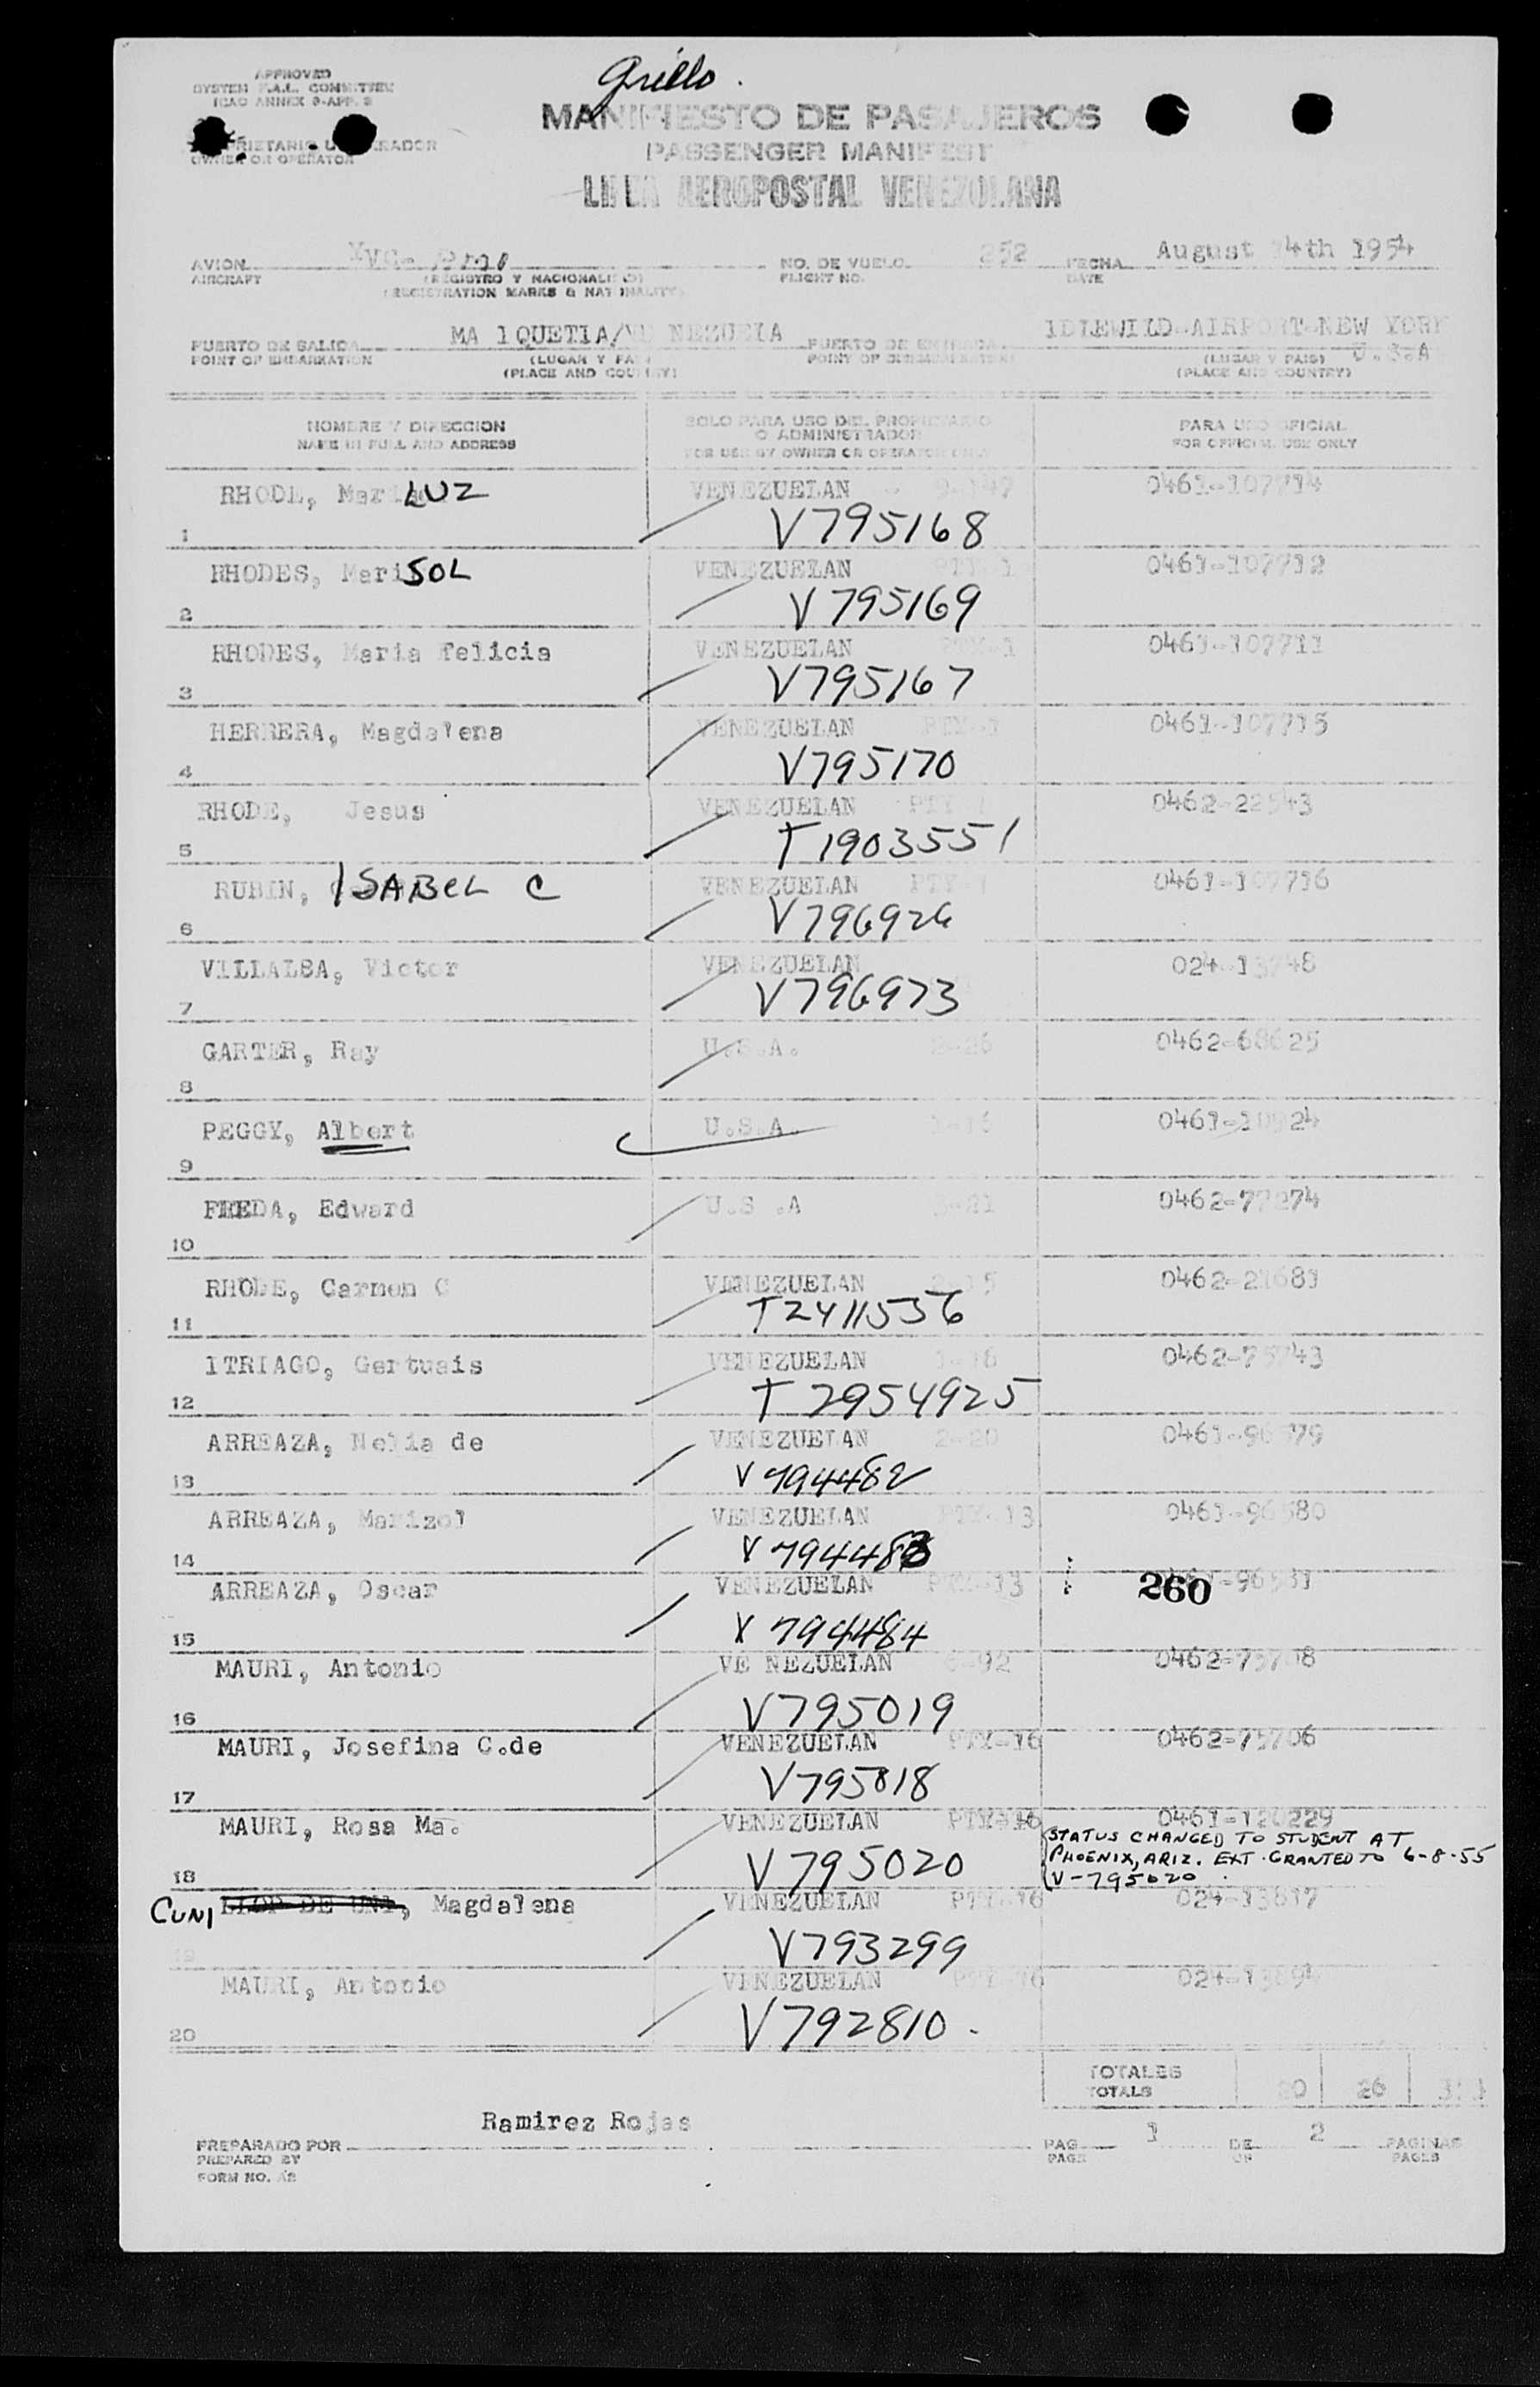 Grillo.
APPROVED
SYSTEM F.A.L. COMMITTEE
ICAO ANNEX 9-APP. 3
MANIFIESTO DE PASAJEROS
OWNER OR OPERATOR
PASSENGER MANIFEST
LINEA AEROPOSTAL VENEZOLANA
AVION NO. DE VUELO 252 FECHA August 14th 1954
AIRCRAFT (REGISTRO Y NACIONALIDAD) FLIGHT NO. DATE
(REGISTRATION MARKS & NATIONALITY)
PUERTO DE SALIDA MA IQUETIA/VE NEZUELA PUERTO DE ENTRADA IDLEWILD AIRPORT NEW YORK
POINT OF EMBARKATION (LUGAR Y PAIS) (LUGAR Y PAIS) U.S.A
(PLACE AND COUNTRY) (PLACE AND COUNTRY)
NOMBRE Y DIRECCION SOLO PARA USO DEL PROPIETARIO PARA USO OFICIAL
NAME IN FULL AND ADDRESS O ADMINISTRADOR FOR OFFICIAL USE ONLY
FOR USE BY OWNER OR OPERATOR ONLY
RHODE, Maria LUZ VENEZUELAN 0461-107714
1 V795168
RHODES, MariSOL VENEZUELAN PTY-1 0461-107712
2 V795169
RHODES, Maria felicia VENEZUELAN PTY-1 0461-107711
3 V795167
HERRERA, Magdalena VENEZUELAN PTY-1 0461-107715
4 V795170
RHODE, Jesus VENEZUELAN PTY-1 0462-22543
5 T1903551
RUBIN, ISABEL C VENEZUELAN PTY-1 0461-107716
6 V796926
VILLALBA, Victor VENEZUELAN 024-13748
7 V796973
GARTER, Ray U.S.A. 2-26 0462-68625
8
PEGGY, Albert U.S.A.
9
Edward U.S .A 0462-77274
10
RHODE, Carmen C VENEZUELAN 2-15 0462-21681
11 T2411556
ITRIAGO, Gertuais VENEZUELAN 1-18 0462-75743
12 T 2954925
ARREAZA, Nelia de VENEZUELAN 2-20 0461-96579
13 V 794482
ARREAZA, Marizol VENEZUELAN PTY-13 0461-96580
14 V 794483
ARREAZA, Oscar VENEZUELAN PTY-13 260 -96581
15 V 794484
MAURI, Antonio VE NEZUELAN 0462-75708
16 V795019
MAURI, Josefina C.de VENEZUELAN PTY-16 0462-75706
17 V795018
MAURI, Rosa Ma. VENEZUELAN PTY-16 0461-120229
STATUS CHANGED TO STUDENT AT
PHOENIX, ARIZ. EXT. GRANTED TO 6-8-55
18 V 795020 V-795020.
CUNI LLOP DE UNI, Magdalena VENEZUELAN PTY-16 024-13817
19 V793299
MAURI, Antonio VENEZUELAN PTY-16
20 V792810.
TOTALES 20 26
TOTALS
Ramirez Rojas
PREPARADO POR PAG. 1 DE 2 PAGINAS
PREPARED BY PAGE OF PAGES
FORM NO. A2